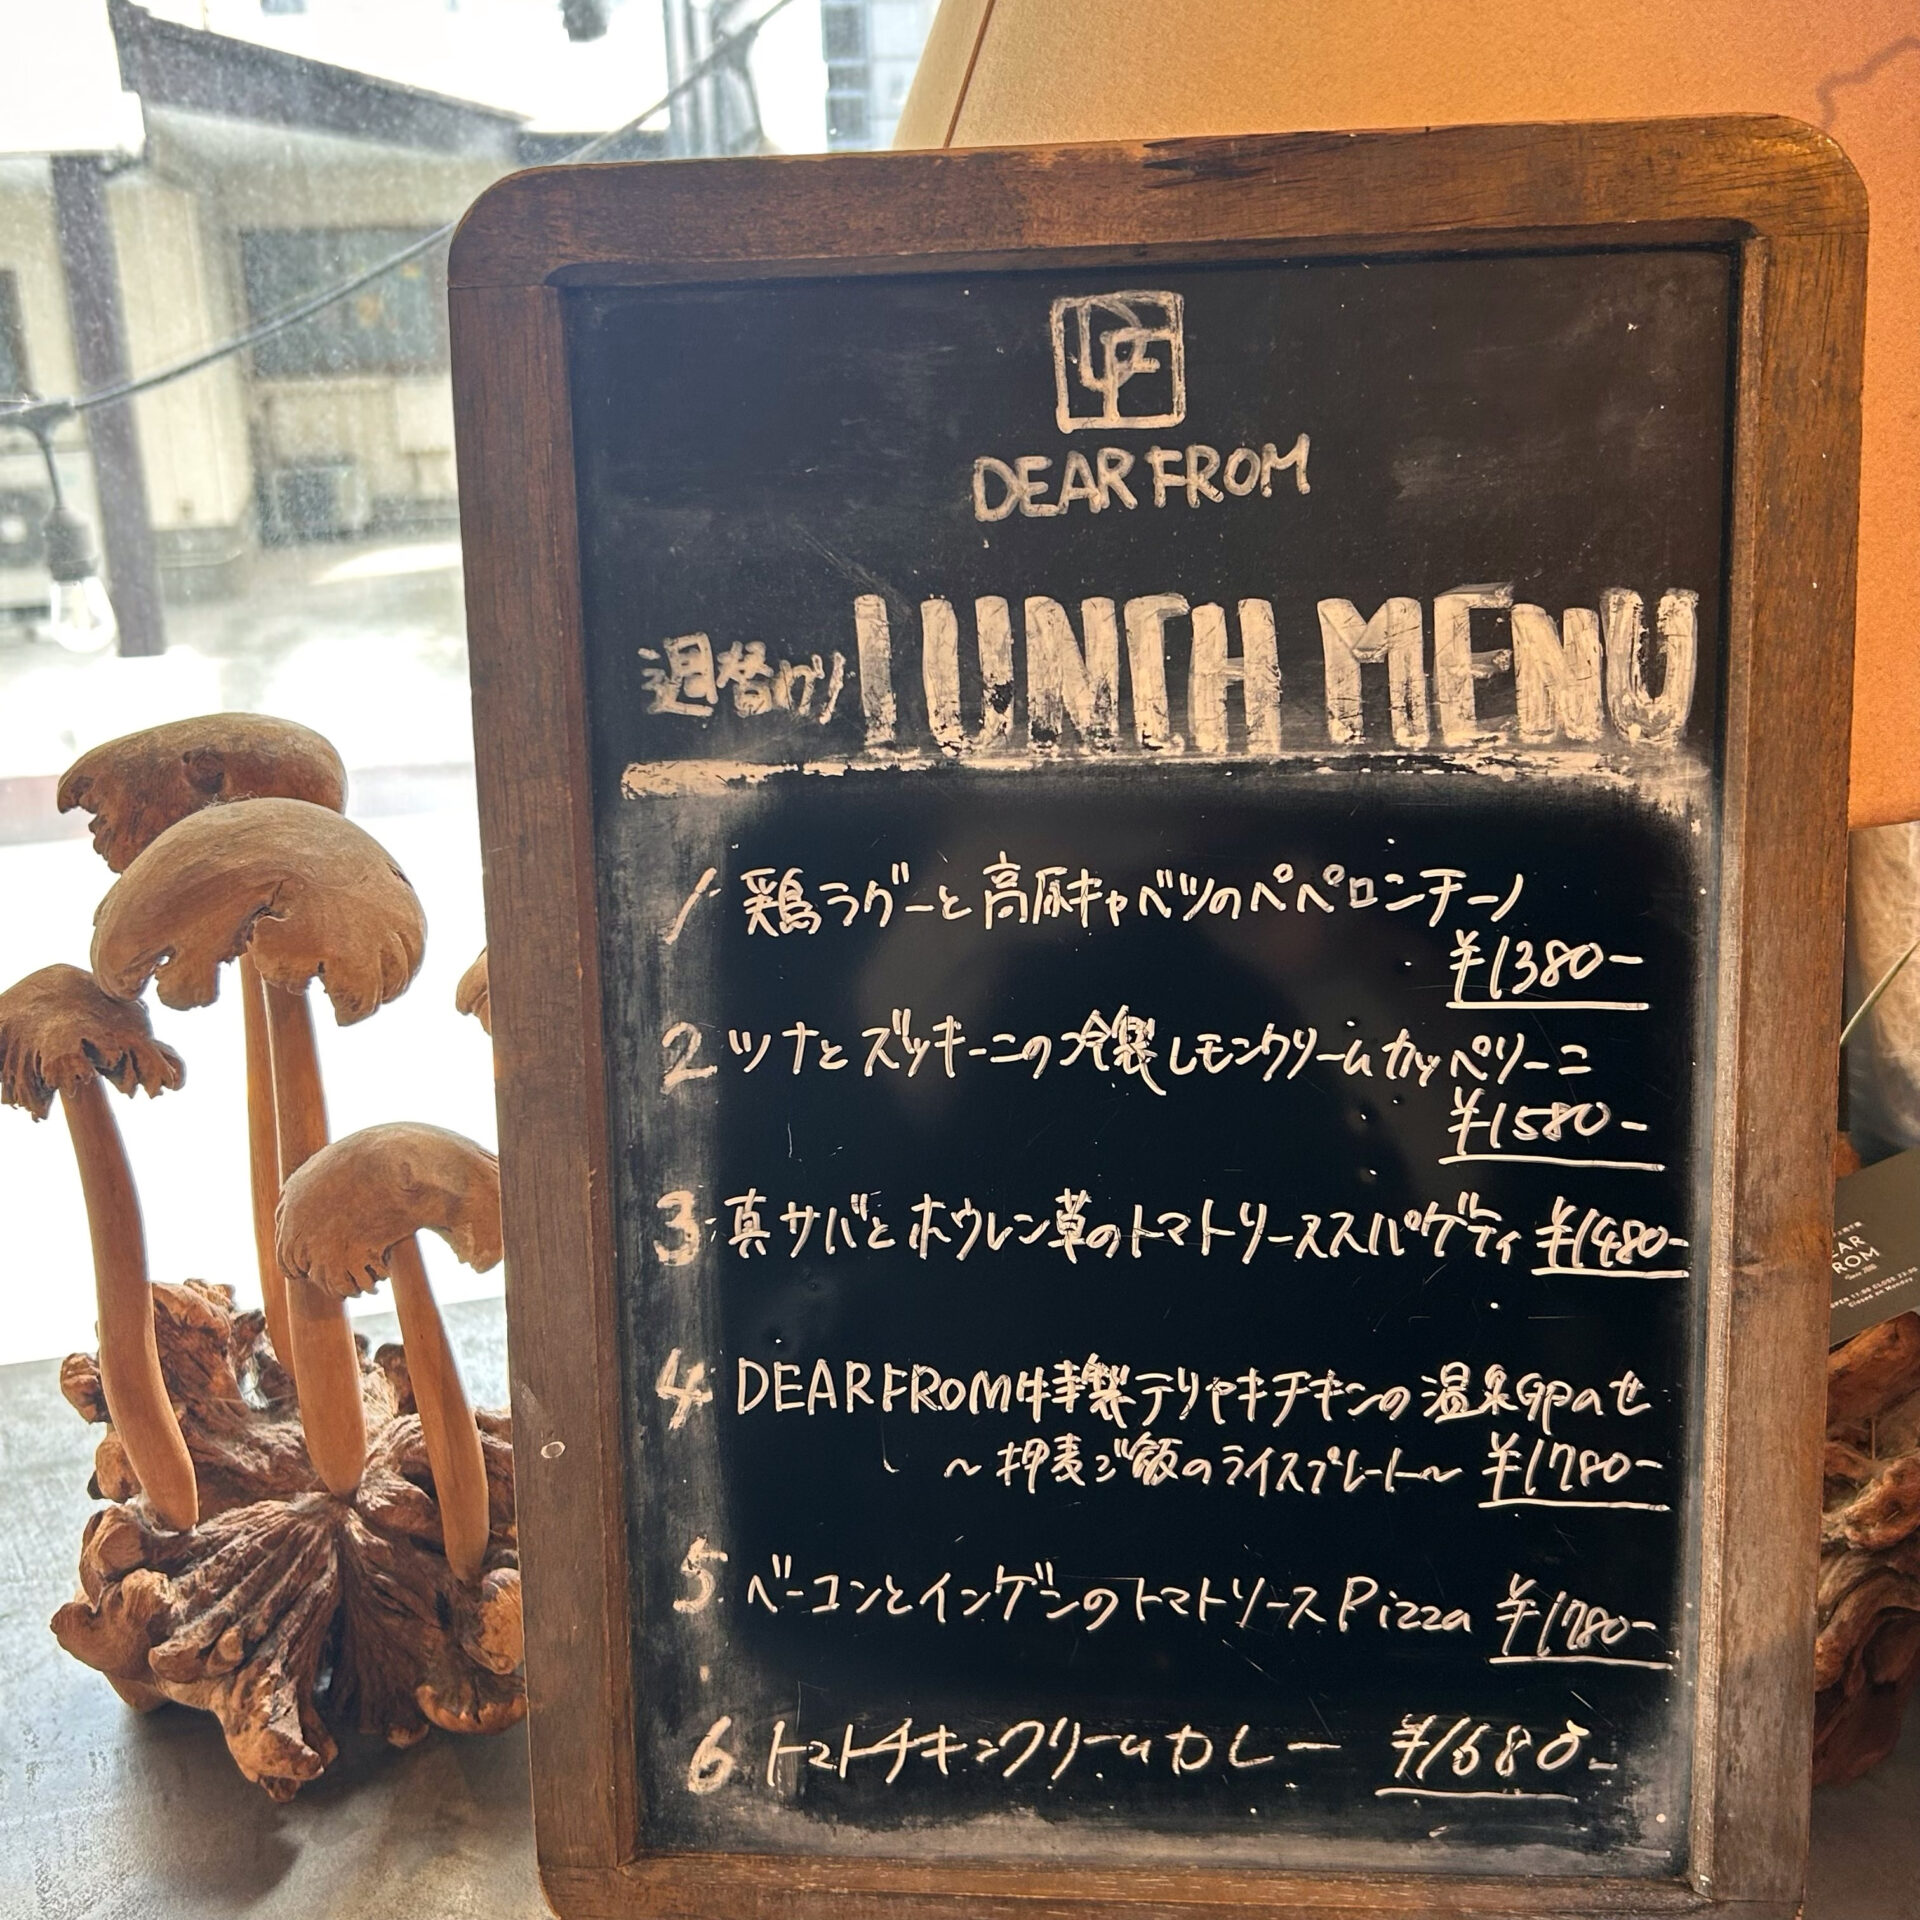 DF
DEAR FROM
週替り LUNCH MENU
1 鶏ラグーと高原キャベツのペペロンチーノ
¥1380-
2 ツナとズッキーニの冷製レモンクリームカッペリーニ
¥1580-
3 真サバとホウレン草のトマトソーススパゲティ ¥1480-
4 DEAR FROM特製テリヤキチキンの温泉
~押麦ご飯のライスプレート~ ¥1780-
5 ベーコンとインゲンのトマトソース Pizza ¥1780-
6 トマトチキンクリームカレー ¥1680-
AR
ROM
OPEN 17:00 CLOSE 23:00
Closed on Monday